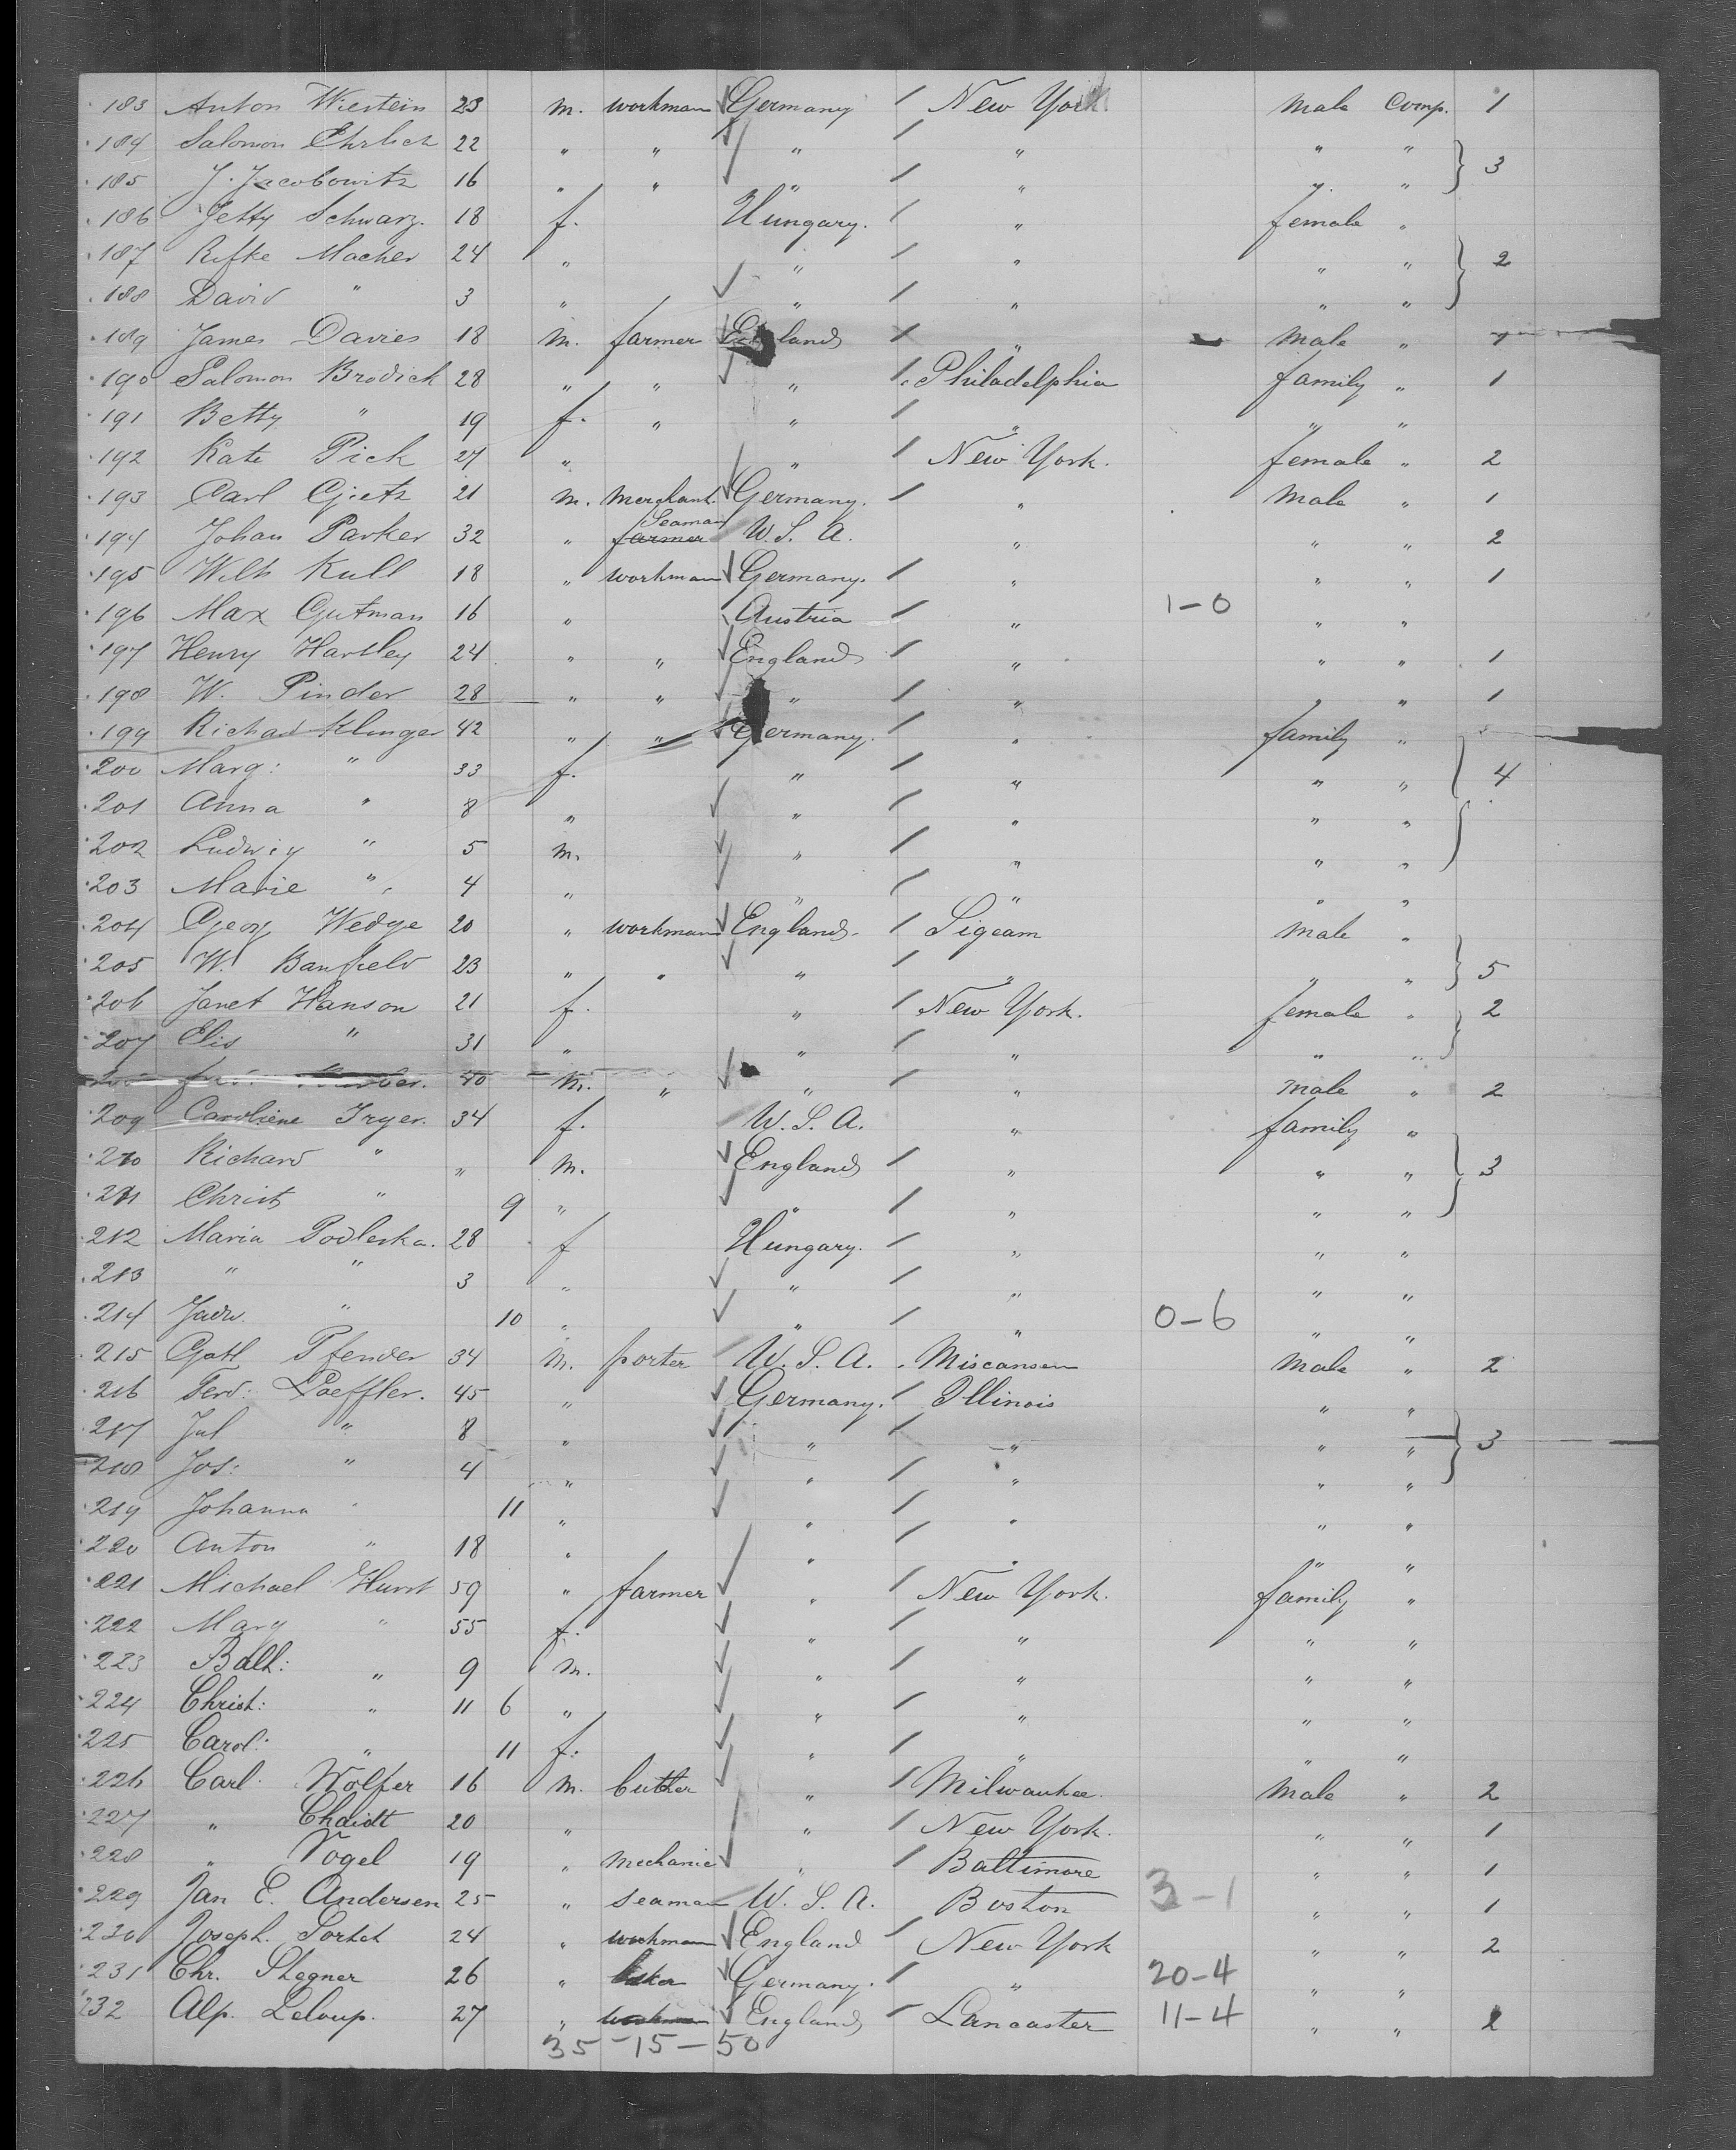 183 Anton Wiestein 23 m. workman Germany New York male Comp. 1
184 Salomon Ehrlich 22 " " " " " " } 3
185 J. Jacobowitz 16 " " " " y. "
186 Jetty Schwarz. 18 f. Hungary. " female "
187 Rifke Macher 24 " " " " " } 2
188 David " 3 " " " " "
189 James Davies 18 m. farmer England " male " 1
190 Salomon Brodick 28 " " " Philadelphia family " 1
191 Betty " 19 f. " " " " "
192 Kate Pick 27 " " New York. female " 2
193 Carl Gjetz 21 m. Merchant. Germany. " male " 1
194 Johan Parker 32 " farmer Seaman U.S. A. " " " 2
195 Wilh Kull 18 " workman Germany. " " " 1
196 Max Gutman 16 " Austria " 1-0 " "
197 Henry Hartley 24 " " England " " " 1
198 W. Pinder 28 " " " " " " 1
199 Richad Klinger 42 " " Germany. " family "
200 Marg: " 33 f. " " " " } 4
201 Anna " 8 " " " " "
202 Ludwig " 5 m. " " " "
203 Marie " 4 " " " " "
204 Georg Wedge 20 " workman England Ligeam male "
205 W. Banfield 23 " " " " " " } 5
206 Janet Hanson 21 f. " New York. female " 2
207 Elis " 31 " " " " "
40 m. " " " male " 2
209 Caroliene Fryer. 34 f. U.S.A. " family "
210 Richard " " m. England " " " } 3
211 Christ " 9 " " " " "
212 Maria Podleska. 28 f Hungary. " " "
213 " " 3 " " " " "
214 Jadw. " 10 " " " 0-6 " "
215 Gotl Pfender 34 m. porter U.S.A. Miscansen male " 2
216 Ferd: Loeffler. 45 " Germany. Illinois " "
217 Jul " 8 " " " " " } 3
218 Jos: " 4 " " " " "
219 Johanna " 11 " " " " "
220 Anton " 18 " " " " "
221 Michael Hurst 59 " farmer " New York. family "
222 Marg " 55 f. " " " "
223 Balt: " 9 m. " " " "
224 Christ: " 11 6 " " " " "
225 Carol: " 11 f. " " " "
226 Carl Wolfer 16 m. butler " Milwaukee. male " 2
227 " Chaidt 20 " " New York. " " 1
228 " Vogel 19 " mechanic " Baltimore " " 1
229 Jan E. Andersen 25 " seaman U.S.A. Boston 3-1 " " 1
230 Joseph. Sortet 24 " workman England New York " " 2
231 Chr. Stegner 26 " Germany. " 20-4 " "
232 Alp. Leloup. 27 " workman England Lancaster 11-4 " " 2
35-15-50